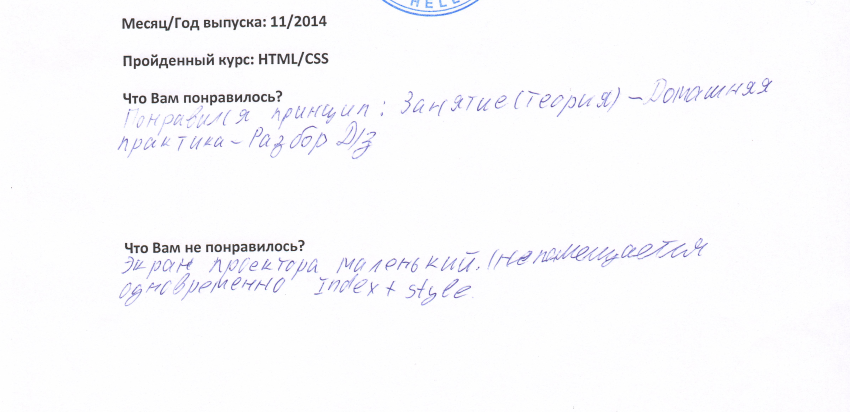 HELL
Месяц/Год выпуска: 11/2014
Пройденный курс: HTML/CSS
Что Вам понравилось?
Понравился принцип: Занятие (теория) – Домашняя
практика – Разбор Д/з
Что Вам не понравилось?
Экран проектора маленький. (не помещается
одновременно Index + style.